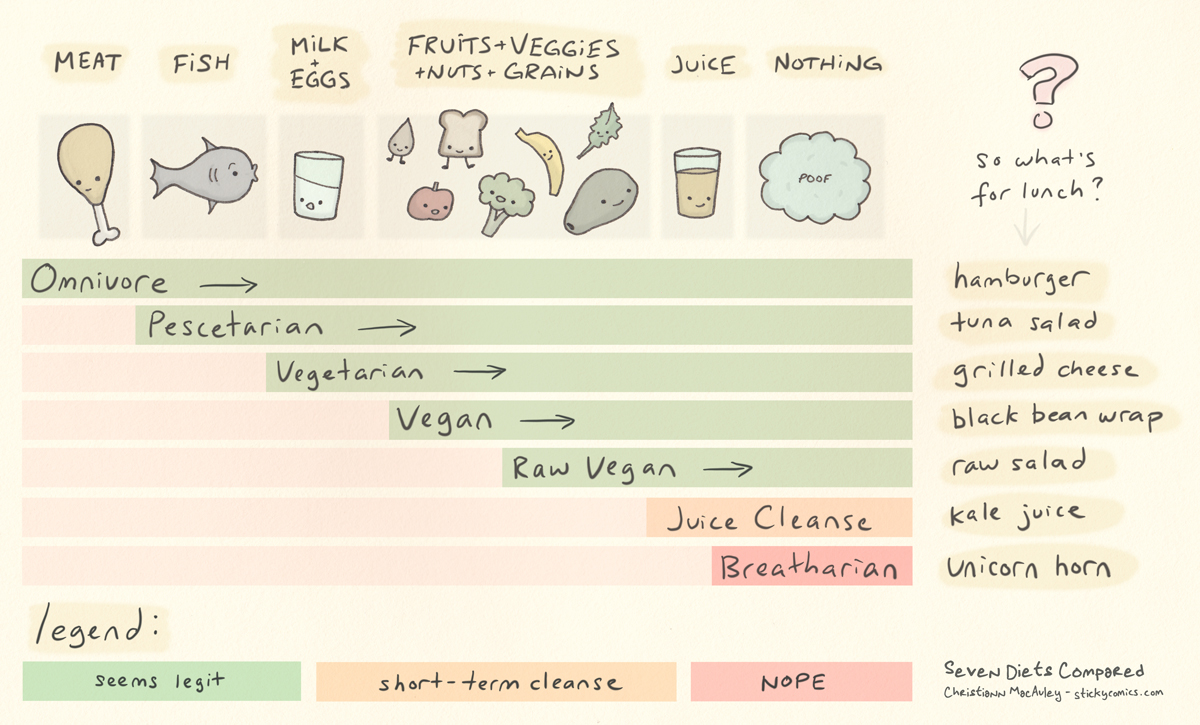 MEAT
FiSH
MiLK
+
EGGS
FRUiTS+VEGGiES
+NUTS+ GRAiNS
JUiCE
NOTHiNG
POOF
?
so what's
for lunch?
Omnivore →
Pescetarian →
Vegetarian →
Vegan →
Raw Vegan →
Juice Cleanse
Breatharian
hamburger
tuna salad
grilled cheese
black bean wrap
raw salad
kale juice
unicorn horn
legend:
seems legit
short-term cleanse
NOPE
Seven Diets Compared
Christiann MacAuley - stickycomics.com